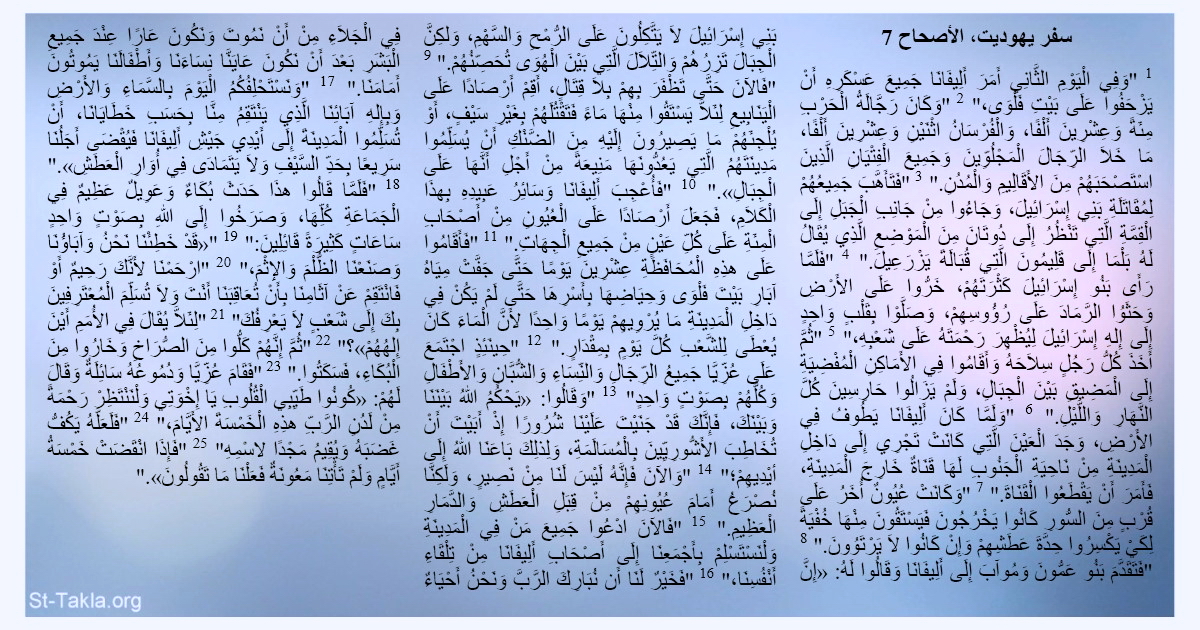 سفر يهوديت، الأصحاح 7
1 "وَفِي الْيَوْمِ الثَّانِي أَمَرَ أَلِيفَانَا جَمِيعَ عَسْكَرِهِ أَنْ
يَزْحَفُوا عَلَى بَيْتِ فَلْوَى،" 2 "وَكَانَ رَجَّالَةُ الْحَرْبِ
مِئَةً وَعِشْرِينَ أَلْفًا، وَالْفُرْسَانُ اثْنَيْنِ وَعِشْرِينَ أَلْفًا،
مَا خَلاَ الرِّجَالَ الْمَجْلُوِّينَ وَجَمِيعَ الْفِتْيَانِ الَّذِينَ
اسْتَصْحَبَهُمْ مِنَ الأَقَالِيمِ وَالْمُدُنِ." 3 "فَتَأَهَّبَ جَمِيعُهُمْ
لِمُقَاتَلَةِ بَنِي إِسْرَائِيلَ، وَجَاءُوا مِنْ جَانِبِ الْجَبَلِ إِلَى
الْقِمَّةِ الَّتِي تَنْظُرُ إِلَى دُوتَانَ مِنَ الْمَوْضِعِ الَّذِي يُقَالُ
لَهُ بَلْمَا إِلَى قَلِيمُونَ الَّتِي قُبَالَةَ يَزْرَعِيلَ." 4 "فَلَمَّا
رَأَى بَنُو إِسْرَائِيلَ كَثْرَتَهُمْ، خَرُّوا عَلَى الأَرْضِ
وَحَثَوُا الرَّمَادَ عَلَى رُؤُوسِهِمْ، وَصَلَّوْا بِقَلْبٍ وَاحِدٍ
إِلَى إِلهِ إِسْرَائِيلَ لِيُظْهِرَ رَحْمَتَهُ عَلَى شَعْبِهِ،" 5 "ثُمَّ
أَخَذَ كُلُّ رَجُلٍ سِلاَحَهُ وَأَقَامُوا فِي الأَمَاكِنِ الْمُفْضِيَةِ
إِلَى الْمَضِيقِ بَيْنَ الْجِبَالِ، وَلَمْ يَزَالُوا حَارِسِينَ كُلَّ
النَّهَارِ وَاللَّيْلِ." 6 "وَلَمَّا كَانَ أَلِيفَانَا يَطُوفُ فِي
الأَرْضِ، وَجَدَ الْعَيْنَ الَّتِي كَانَتْ تَجْرِي إِلَى دَاخِلِ
الْمَدِينَةِ مِنْ نَاحِيَةِ الْجَنُوبِ لَهَا قَنَاةٌ خَارِجَ الْمَدِينَةِ،
فَأَمَرَ أَنْ يَقْطَعُوا الْقَنَاةَ." 7 "وَكَانَتْ عُيُونٌ أُخَرُ عَلَى
قُرْبٍ مِنَ السُّورِ كَانُوا يَخْرُجُونَ فَيَسْتَقُونَ مِنْهَا خُفْيَةً
لِكَيْ يَكْسِرُوا حِدَّةَ عَطَشِهِمْ وَإِنْ كَانُوا لاَ يَرْتَوُونَ." 8
"فَتَقَدَّمَ بَنُو عَمُّونَ وَمُوآبَ إِلَى أَلِيفَانَا وَقَالُوا لَهُ: «إِنَّ
بَنِي إِسْرَائِيلَ لاَ يَتَّكِلُونَ عَلَى الرُّمْحِ وَالسَّهْمِ، وَلكِنَّ
الْجِبَالَ تَزِرُهُمْ وَالتِّلاَلَ الَّتِي بَيْنَ الْهُوَى تُحَصِّنُهُمْ." 9
"فَالآنَ حَتَّى تَظْفَرَ بِهِمْ بِلاَ قِتَالٍ، أَقِمْ أَرْصَادًا عَلَى
الْيَنَابِيعِ لِئَلاَّ يَسْتَقُوا مِنْهَا مَاءً فَتَقْتُلَهُمْ بِغَيْرِ سَيْفٍ، أَوْ
يُلْجِئَهُمْ مَا يَصِيرُونَ إِلَيْهِ مِنَ الضَّنْكِ أَنْ يُسَلِّمُوا
مَدِينَتَهُمُ الَّتِي يَعُدُّونَهَا مَنِيعَةً مِنْ أَجْلِ أَنَّهَا عَلَى
الْجِبَالِ»." 10 "فَأُعْجِبَ أَلِيفَانَا وَسَائِرُ عَبِيدِهِ بِهذَا
الْكَلاَمِ، فَجَعَلَ أَرْصَادًا عَلَى الْعُيُونِ مِنْ أَصْحَابِ
الْمِئَةِ عَلَى كُلِّ عَيْنٍ مِنْ جَمِيعِ الْجِهَاتِ." 11 "فَأَقَامُوا
عَلَى هذِهِ الْمُحَافَظَةِ عِشْرِينَ يَوْمًا حَتَّى جَفَّتْ مِيَاهُ
آبَارِ بَيْتَ فَلْوَى وَحِيَاضِهَا بِأَسْرِهَا حَتَّى لَمْ يَكُنْ فِي
دَاخِلِ الْمَدِينَةِ مَا يُرْوِيهِمْ يَوْمًا وَاحِدًا لأَنَّ الْمَاءَ كَانَ
يُعْطَى لِلشَّعْبِ كُلَّ يَوْمٍ بِمِقْدَارٍ." 12 "حِينَئِذٍ اجْتَمَعَ
عَلَى عُزِّيَّا جَمِيعُ الرِّجَالِ وَالنِّسَاءِ وَالشُّبَّانِ وَالأَطْفَالِ
وَكُلُّهُمْ بِصَوْتٍ وَاحِدٍ" 13 "وَقَالُوا: «يَحْكُمُ اللهُ بَيْنَنَا
وَبَيْنَكَ، فَإِنَّكَ قَدْ جَنَيْتَ عَلَيْنَا شُرُورًا إِذْ أَبَيْتَ أَنْ
تُخَاطِبَ الأَشُّورِيِّينَ بِالْمُسَالَمَةِ، وَلِذلِكَ بَاعَنَا اللهُ إِلَى
أَيْدِيهِمْ؛" 14 "وَالآنَ فَإِنَّهُ لَيْسَ لَنَا مِنْ نَصِيرٍ، وَلكِنَّا
نُصْرَعُ أَمَامَ عُيُونِهِمْ مِنْ قِبَلِ الْعَطَشِ وَالدَّمَارِ
الْعَظِيمِ." 15 "فَالآنَ ادْعُوا جَمِيعَ مَنْ فِي الْمَدِينَةِ
وَلْنَسْتَسْلِمْ بِأَجْمَعِنَا إِلَى أَصْحَابِ أَلِيفَانَا مِنْ تِلْقَاءِ
أَنْفُسِنَا،" 16 "فَخَيْرٌ لَنَا أَن نُبَارِكَ الرَّبَّ وَنَحْنُ أَحْيَاءٌ
فِي الْجَلاَءِ مِنْ أَنْ نَمُوتَ وَنَكُونَ عَارًا عِنْدَ جَمِيعِ
الْبَشَرِ بَعْدَ أَنْ نَكُونَ عَايَنَّا نِسَاءَنَا وَأَطْفَالَنَا يَمُوتُونَ
أَمَامَنَا." 17 "وَنَسْتَحْلِفُكُمُ الْيَوْمَ بِالسَّمَاءِ وَالأَرْضِ
وَبِإِلهِ آبَائِنَا الَّذِي يَنْتَقِمُ مِنَّا بِحَسَبِ خَطَايَانَا، أَنْ
تُسَلِّمُوا الْمَدِينَةَ إِلَى أَيْدِي جَيْشِ أَلِيفَانَا فَيُقْضَى أَجَلُنَا
سَرِيعًا بِحَدِّ السَّيْفِ وَلاَ يَتَمَادَى فِي أُوَارِ الْعَطَشِ»."
18 "فَلَمَّا قَالُوا هذَا حَدَثَ بُكَاءٌ وَعَوِيلٌ عَظِيمٌ فِي
الْجَمَاعَةِ كُلِّهَا، وَصَرَخُوا إِلَى اللهِ بِصَوْتٍ وَاحِدٍ
سَاعَاتٍ كَثِيرَةً قَائِلِينَ:" 19 "«قَدْ خَطِئْنَا نَحْنُ وَآبَاؤُنَا
وَصَنَعْنَا الظُّلْمَ وَالإِثْمَ،" 20 "ارْحَمْنَا لأَنَّكَ رَحِيمٌ أَوْ
فَانْتَقِمْ عَنْ آثَامِنَا بِأَنْ تُعَاقِبَنَا أَنْتَ وَلاَ تُسَلِّمِ الْمُعْتَرِفِينَ
بِكَ إِلَى شَعْبٍ لاَ يَعْرِفُكَ" 21 "لِئَلاَّ يُقَالَ فِي الأُمَمِ أَيْنَ
إِلهُهُمْ»؟" 22 "ثُمَّ إِنَّهُمْ كَلُّوا مِنَ الصُّرَاخِ وَخَارُوا مِنَ
الْبُكَاءِ، فَسَكَتُوا." 23 "فَقَامَ عُزِّيَّا وَدُمُوعُهُ سَائِلَةٌ وَقَالَ
لَهُمْ: «كُونُوا طَيِّبِي الْقُلُوبِ يَا إِخْوَتِي وَلْنَنْتَظِرْ رَحْمَةً
مِنْ لَدُنِ الرَّبِّ هذِهِ الْخَمْسَةَ الأَيَّامَ،" 24 "فَلَعَلَّهُ يَكُفُّ
غَضَبَهُ وَيُقِيمُ مَجْدًا لاسْمِهِ" 25 "فَإِذَا انْقَضَتْ خَمْسَةُ
أَيَّامٍ وَلَمْ تَأْتِنَا مَعُونَةٌ فَعَلْنَا مَا تَقُولُونَ»."
St-Takla.org